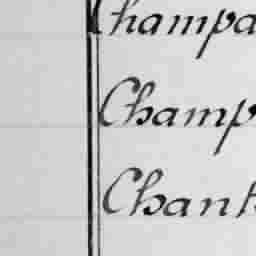 Champa
Champ
Chant